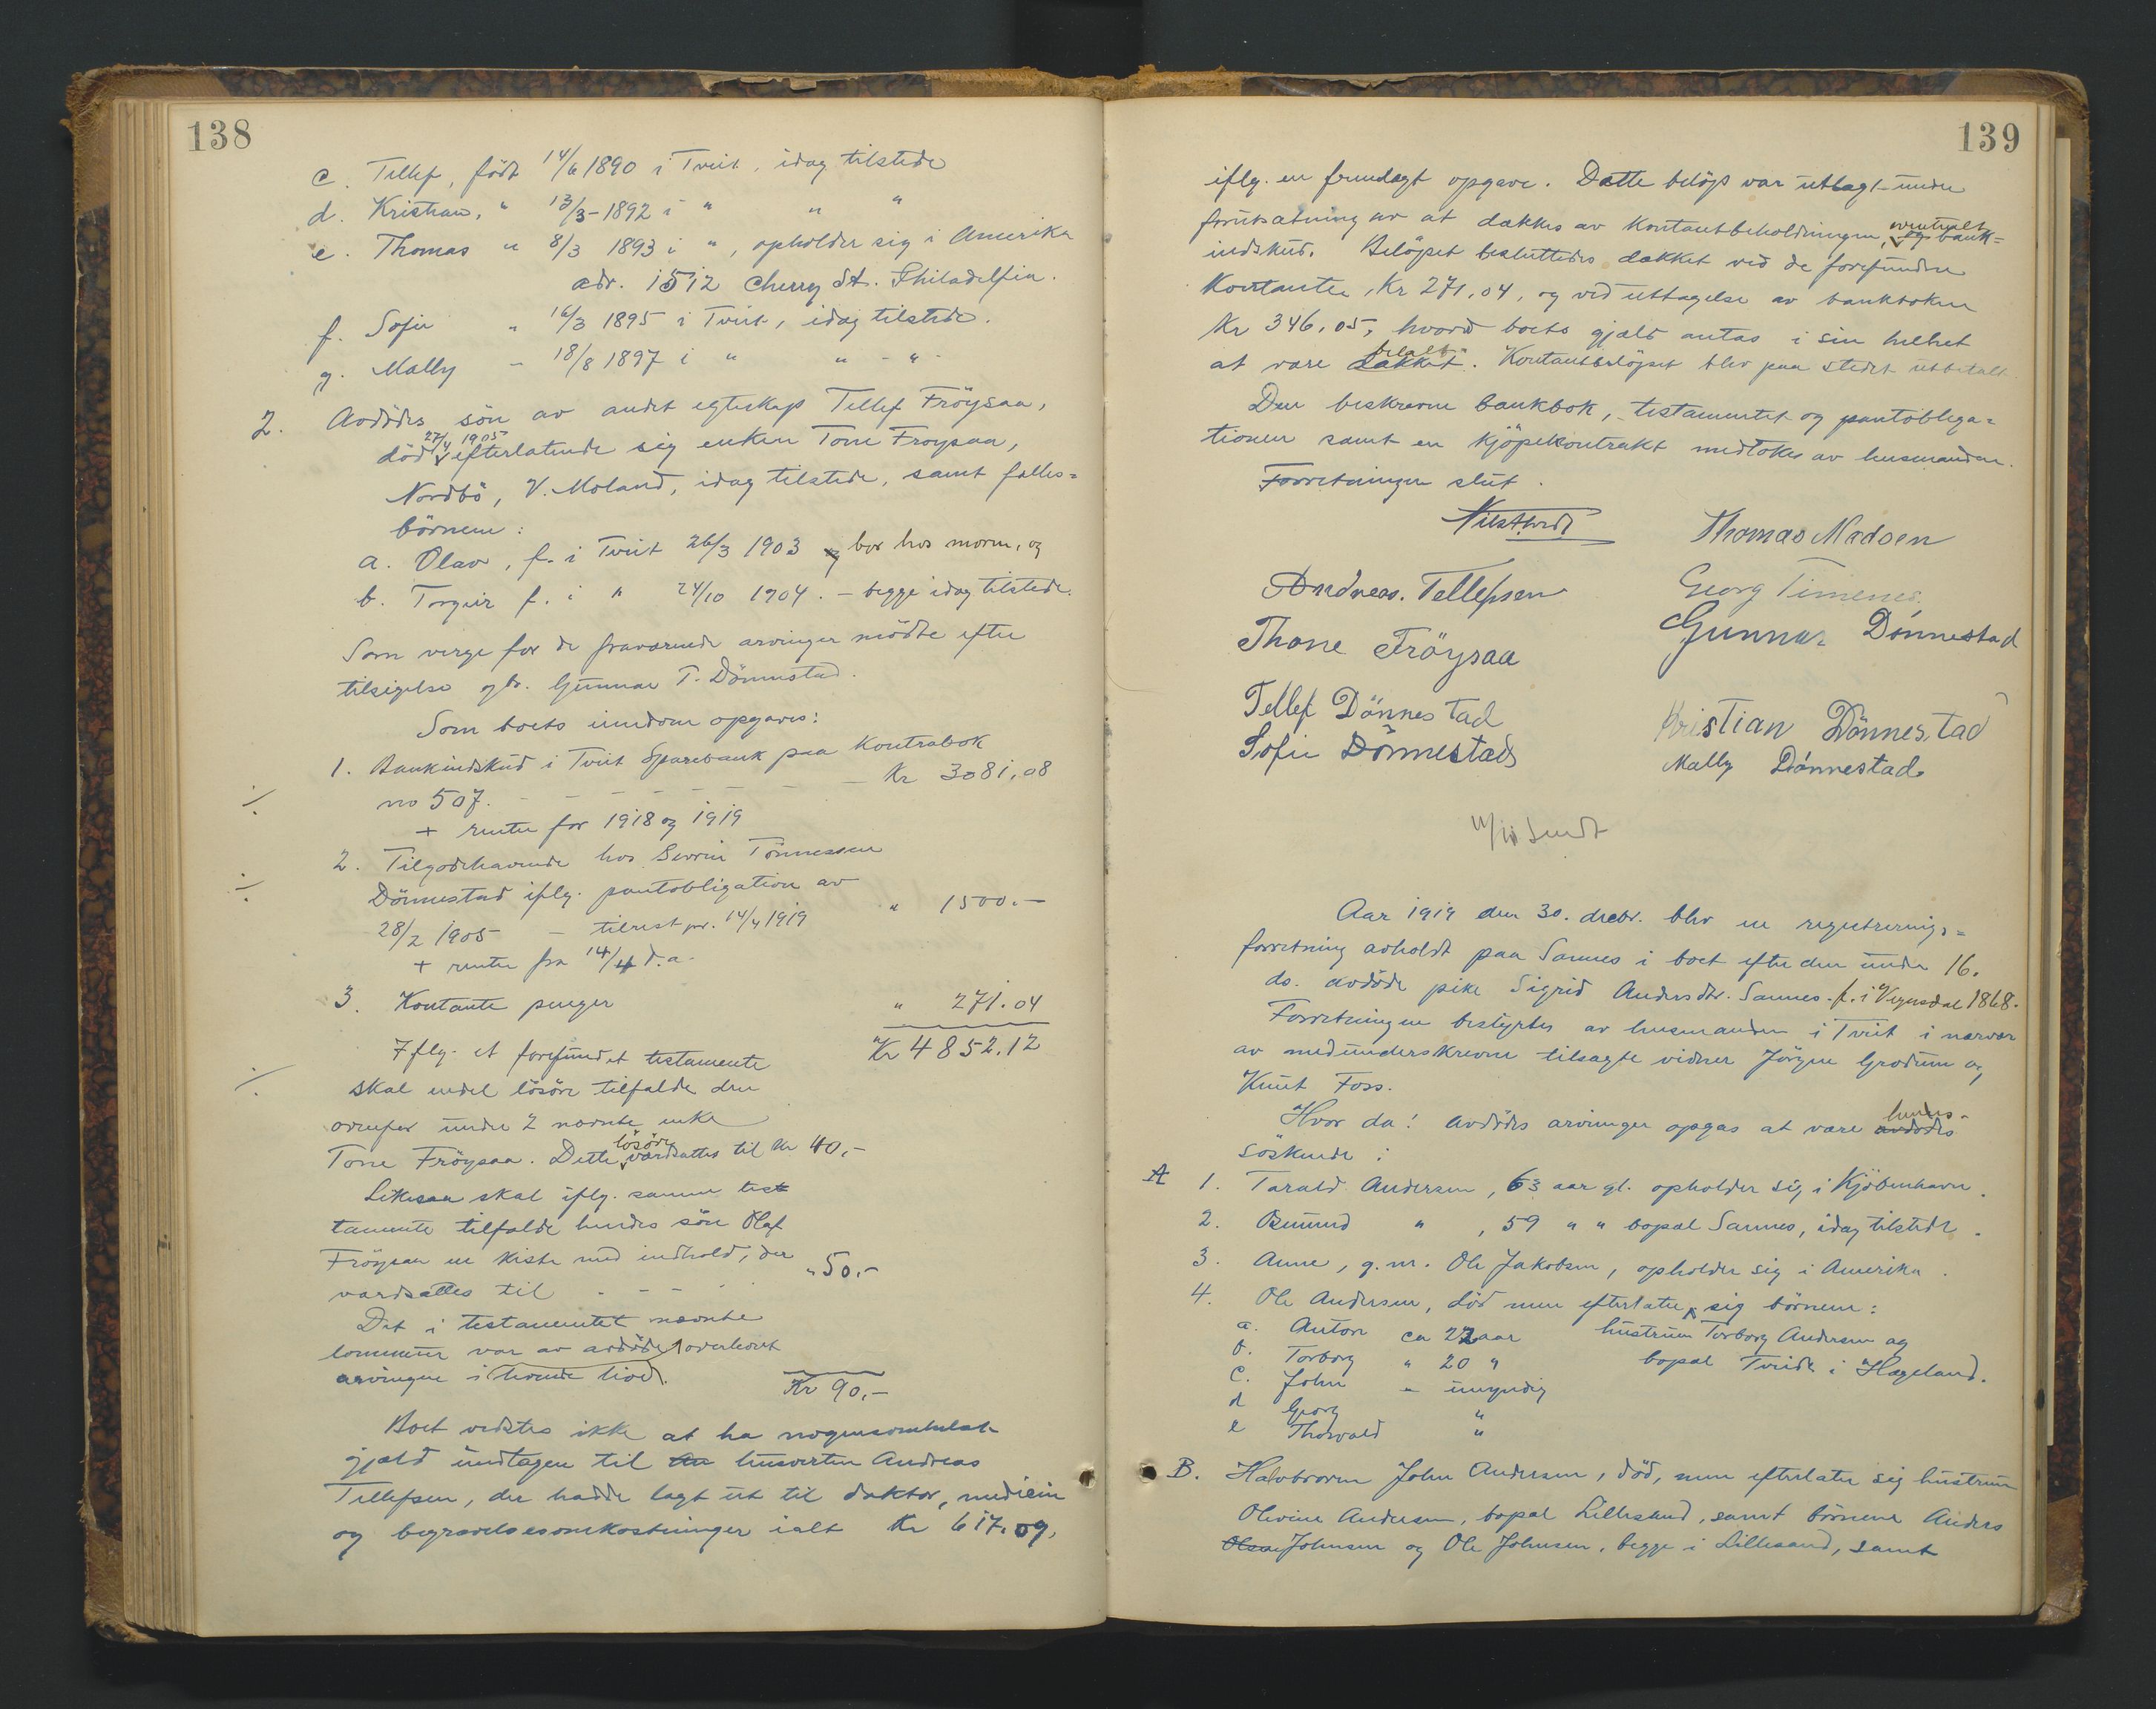 138
c. Tellef, födt 14/6 1890 i Tveit, idag tilstede
d. Kristian, " 13/3 - 1892 i " " "
e. Thomas " 8/3 1893 i ", opholder sig i Amerika
adr. 1512 Cherry St. Philadelfia.
f. Sofie " 16/3 1895 i Tveit, idag tilstede.
g. Mally - 18/8 1897 i " " - " -
2. Avdödes sön av andet egteskap Tellef Fröysaa,
död 27/4 1905 efterlatende sig enken Tone Froysaa,
Nordbö, V. Moland, idag tilstede, samt fælles=
börnene:
a. Olav, f. i Tveit 26/3 1903 og bor hos moren, og
b. Torgeir f. i " 24/10 1904. - begge idag tilstede.
Som verge for de fraværende arvinger mödte efter
tilsigelse gbr. Gunnar T. Dönnestad.
Som boets eiendom opgaves:
1. Bankindskud i Tveit Sparebank paa Kontrabok
no 507. - - - - - - - - Kr 3081,08
+ renter for 1918 og 1919
2. Tilgodehavende hos Severin Tönnessen
Dönnestad iflg. pantobligation av
28/2 1905 - tilrest pr. 14/4 1919 " 1500.-
+ renter fra 14/4 d.a.
3. Kontante penger " 271.04
Kr 4852.12
Iflg. et forefundet testamente
skal endel lösöre tilfalde den
ovenfor under 2 nævnte enke
Tone Fröysaa. Dette lösöre værdsattes til Kr 40,-
Likesaa skal iflg. samme tes
tamente tilfalde hendes sön Olaf
Fröysaa en kiste med indhold, der
værdsattes til - - - " 50,-
Det i testamentet nævnte
lommeur var av avdöde overlevert
arvingen i levende live.
Kr 90,-
Boet vedstes ikke at ha nogensomhelst
gjæld undtagen til husverten Andreas
Tellefsen, der hadde lagt ut til doktor, medicin
og begravelsesomkostninger ialt Kr 617.09,
139
iflg. en fremlagt opgave. Dette belöp var utlagt under
forutsætning av at dækkes av Kontantbeholdningen, eventuelt bank=
indskud. Belöpet besluttedes dækket ved de forefundne
Kontanter, Kr 271,04, og ved uttagelse av bankboken
Kr 346,05, hvorved boets gjæld antas i sin helhet
at være betalt. Kontantbelöpet blev paa stedet utbetalt.
Den beskrevne bankbok, testamentet og pantobliga=
tionen samt en kjöpekontrakt medtokes av lensmanden.
Forretningen slut.
Thomas Madsen
Andreas. Tellefsen Georg Timenes.
Thone Fröysaa Gunnar Dönnestad
Tellef Dönnestad Kristian Dönnestad
Sofie Dönnestad Mally Dönnestad
Sendt
Aar 1919 den 30. decbr. blev en registrerings=
forretning avholdt paa Sannes i boet efter den under 16.
ds. avdöde pike Sigrid Andersdtr. Sannes. f. i Vegusdal 1868.
Forretningen bestyrtes av lensmanden i Tveit i nærvær
av medunderskrevne tilsagte vidner Jörgen Grødum og
Knut Foss.
Hvor da: avdödes arvinger opgas at være hendes
söskende:
A 1. Tarald Andersen, 63 aar gl. opholder sig i Kjöbenhavn.
2. Osmund " , 59 " " bopæl Sannes, idag tilstede.
3. Anne, g. m. Ole Jakobsen, opholder sig i Amerika.
4. Ole Andersen, död men efterlater sig börnene:
a. Anton ca 22 aar hustruen Torborg Andersen og
b. Torborg " 20 " bopæl Tveide i Hægeland.
c. John - umyndig
d Georg "
e Thorvald "
B. Halvbroren John Andersen, död, men efterlater sig hustruen
Olevine Andersen, bopæl Lillesand, samt börnene Anders
Olsen Johnsen og Ole Johnsen, begge i Lillesand, samt